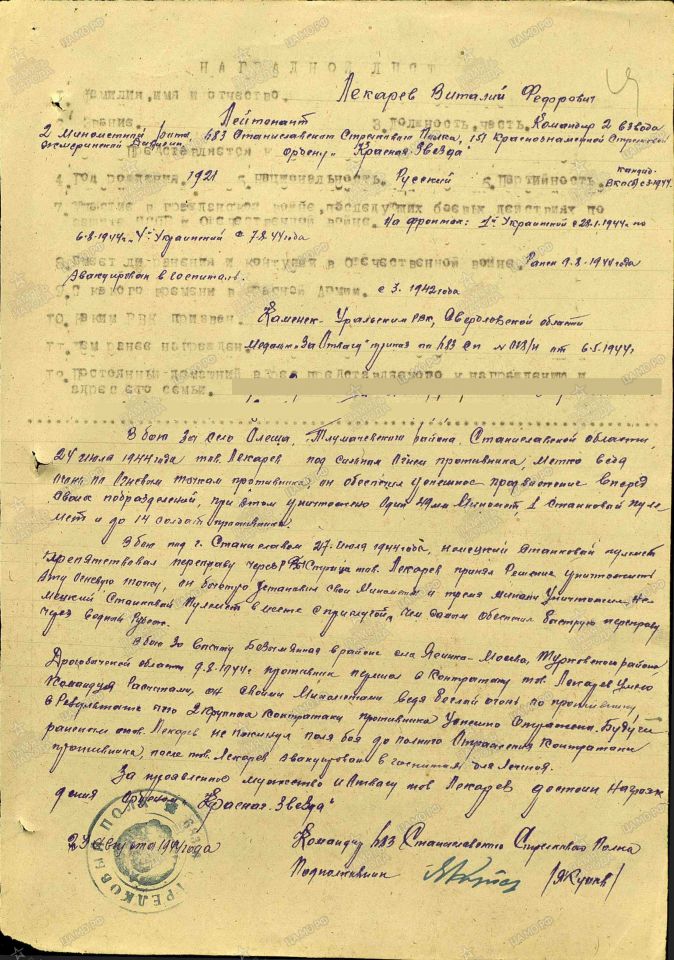 НАГРАДНОЙ ЛИСТ
1. Фамилия, имя и отчество. Лекарев Виталий Федорович
2. Звание. Лейтенант 3. Должность, часть. Командир 2 взвода
2 Минометной роты, 683 Станиславского Стрелкового Полка, 151 Краснознаменной Стрелковой
Жмеринской Дивизии.
Представляется к ордену "Красная Звезда"
4. Год рождения. 1921 5. Национальность. Русский 6. Партийность. кандид.
ВКП(б) с 3-1944г.
7. Участие в гражданской войне, последующих боевых действиях по
защите СССР и Отечественной войне. На фронтах: 1й Украинской с 28.1.1944г. по
6-8-1944г. 4й Украинский с 7.8.44 года
8. Имеет ли ранения и контузии в Отечественной войне. Ранен 9.8-1944 года
Эвакуирован в госпиталь.
9. С какого времени в Красной Армии. с 3. 1942 года
10. Каким РВК призван. Каменск-Уральским РВК, Свердловской области
11. Чем ранее награжден. Медаль "За Отвагу" приказ по 683 сп № от 6.5.1944г.
12. Постоянный домашний адрес представляемого к награждению и
адрес его семьи.
В бою за село Олеша, Тлумачевского района, Станиславской области,
24 июля 1944 года тов. Лекарев под сильным огнем противника, метко ведя
огонь по Огневым точкам противника, он обеспечил успешное продвижение вперед
своих подразделений, при этом уничтожено Один миномет, 1 Станковый пуле-
мет и до 14 солдат противника.
В бою под г. Станиславом 27 июля 1944 года, немецкий Станковый пулемет
препятствовал переправу через тов. Лекарев принял Решение уничтожить
эту Огневую точку, он быстро установил свои Минометы и тремя минами Уничтожил Не-
мецкий Станковый Пулемет вместе с прислугой, Чем самым обеспечил быструю переправу
через водный Рубеж.
В бою За Высоту Безымянная в районе села Ясинка-Москва, Турковского района,
Дрогобычской области 9.8-1944г. противник перешел в Контратаку тов. Лекарев Умело
Командуя Расчетами, он своими Минометами ведя беглый огонь по противнику
в Результате чего 2 крупных контратаки противника Успешно Отражены. Будучи
раненым тов. Лекарев не покинул поля боя до полного Отражения Контратаки
противника, после тов. Лекарев эвакуирован в госпиталь для лечения.
За проявленное мужество и Отвагу тов Лекарев достоин Награж-
дения орденом "Красная Звезда"
23 августа 1944 года Командир 683 Станиславского Стрелкового Полка
Подполковник /Якупов/
ЦАМО.РФ